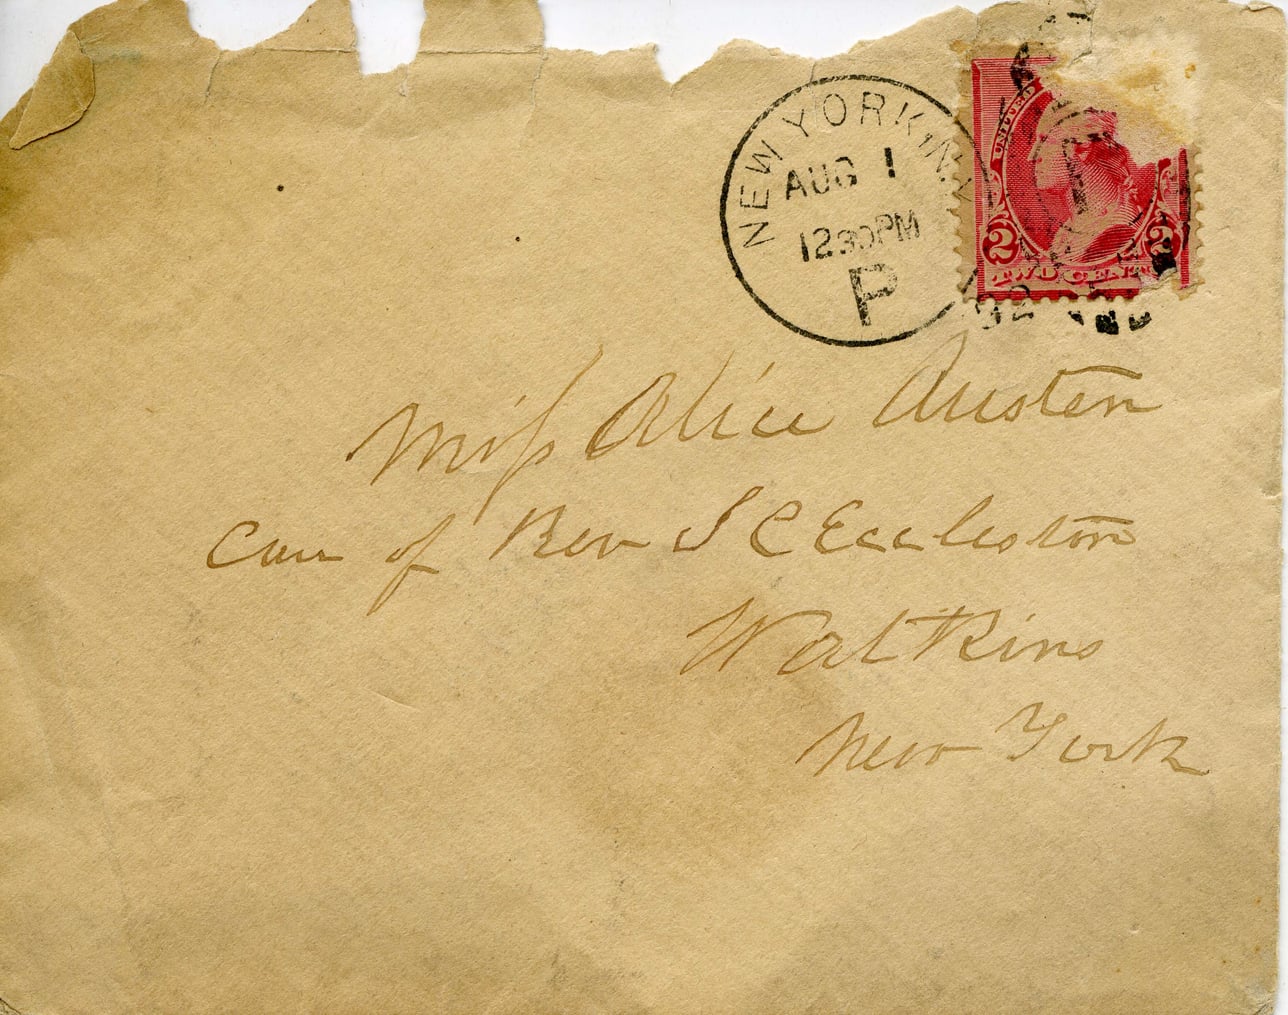 NEW YORK, N.Y.
AUG 1
1230PM
P
92
UNITED
2 2
TWO CENTS
Miss Alice Austen
Care of Rev J C Eccleston
Watkins
New York